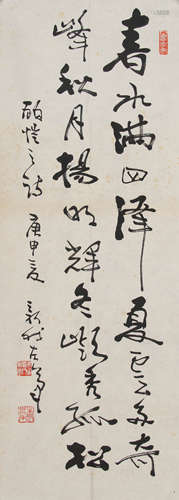 春水满四泽夏云多奇
峰秋月扬明辉冬岭秀孤松
顾恺之诗 庚申夏 新我左笔